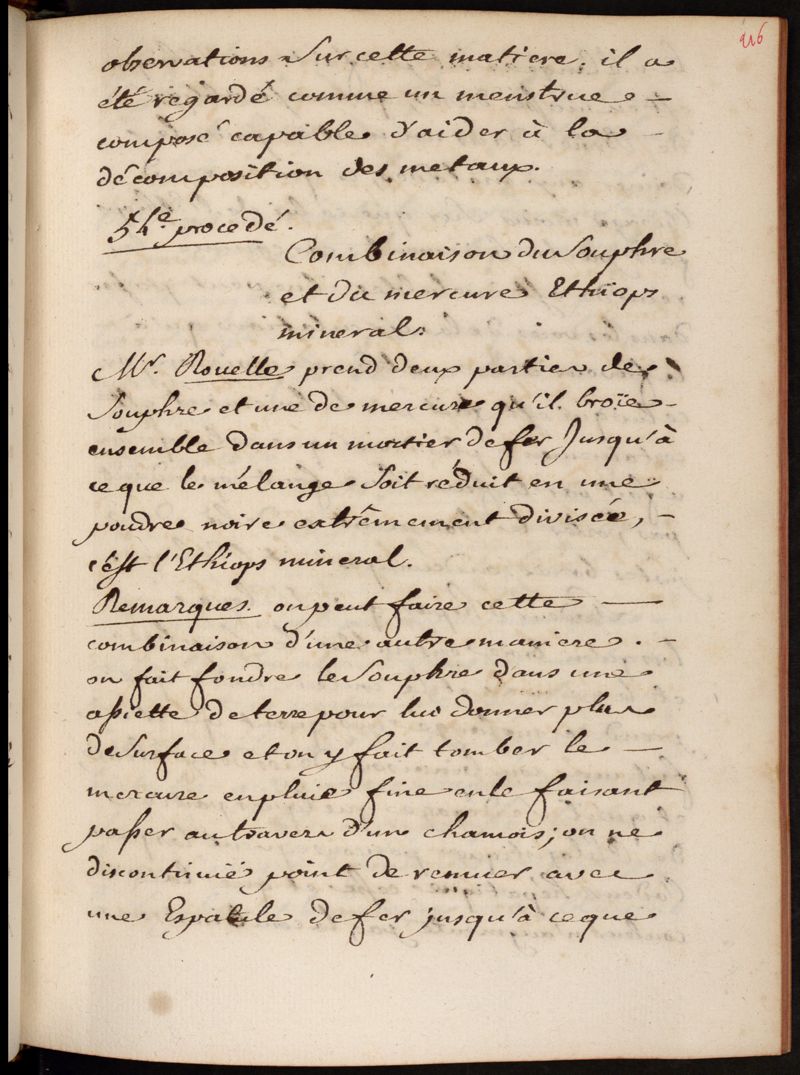 216
observations sur cette matiere, il a
été regardé comme un menstrue –
composé capable d'aider à la –
décomposition des metaux.
54.e procedé.
Combinaison du Souphre
et du mercure Ethïops
mineral.
Mr. Rouelle prend deux parties de
Souphre et une de mercure qu'il broïe –
ensemble dans un mortier de fer Jusqu'à
ce que le mélange soit réduit en une
poudre noire extrêmement divisée, –
c'est l'Ethiops mineral.
Remarques. on peut faire cette —
combinaison d'une autre maniere. –
on fait fondre le Souphre dans une
assiette de terre pour lui donner plus
de Surface et on y fait tomber le —
mercure en pluie fine en le faisant
passer autravers d'un chamois; on ne
discontinuë point de remuer avec
une Espatule de fer jusqu'à ce que